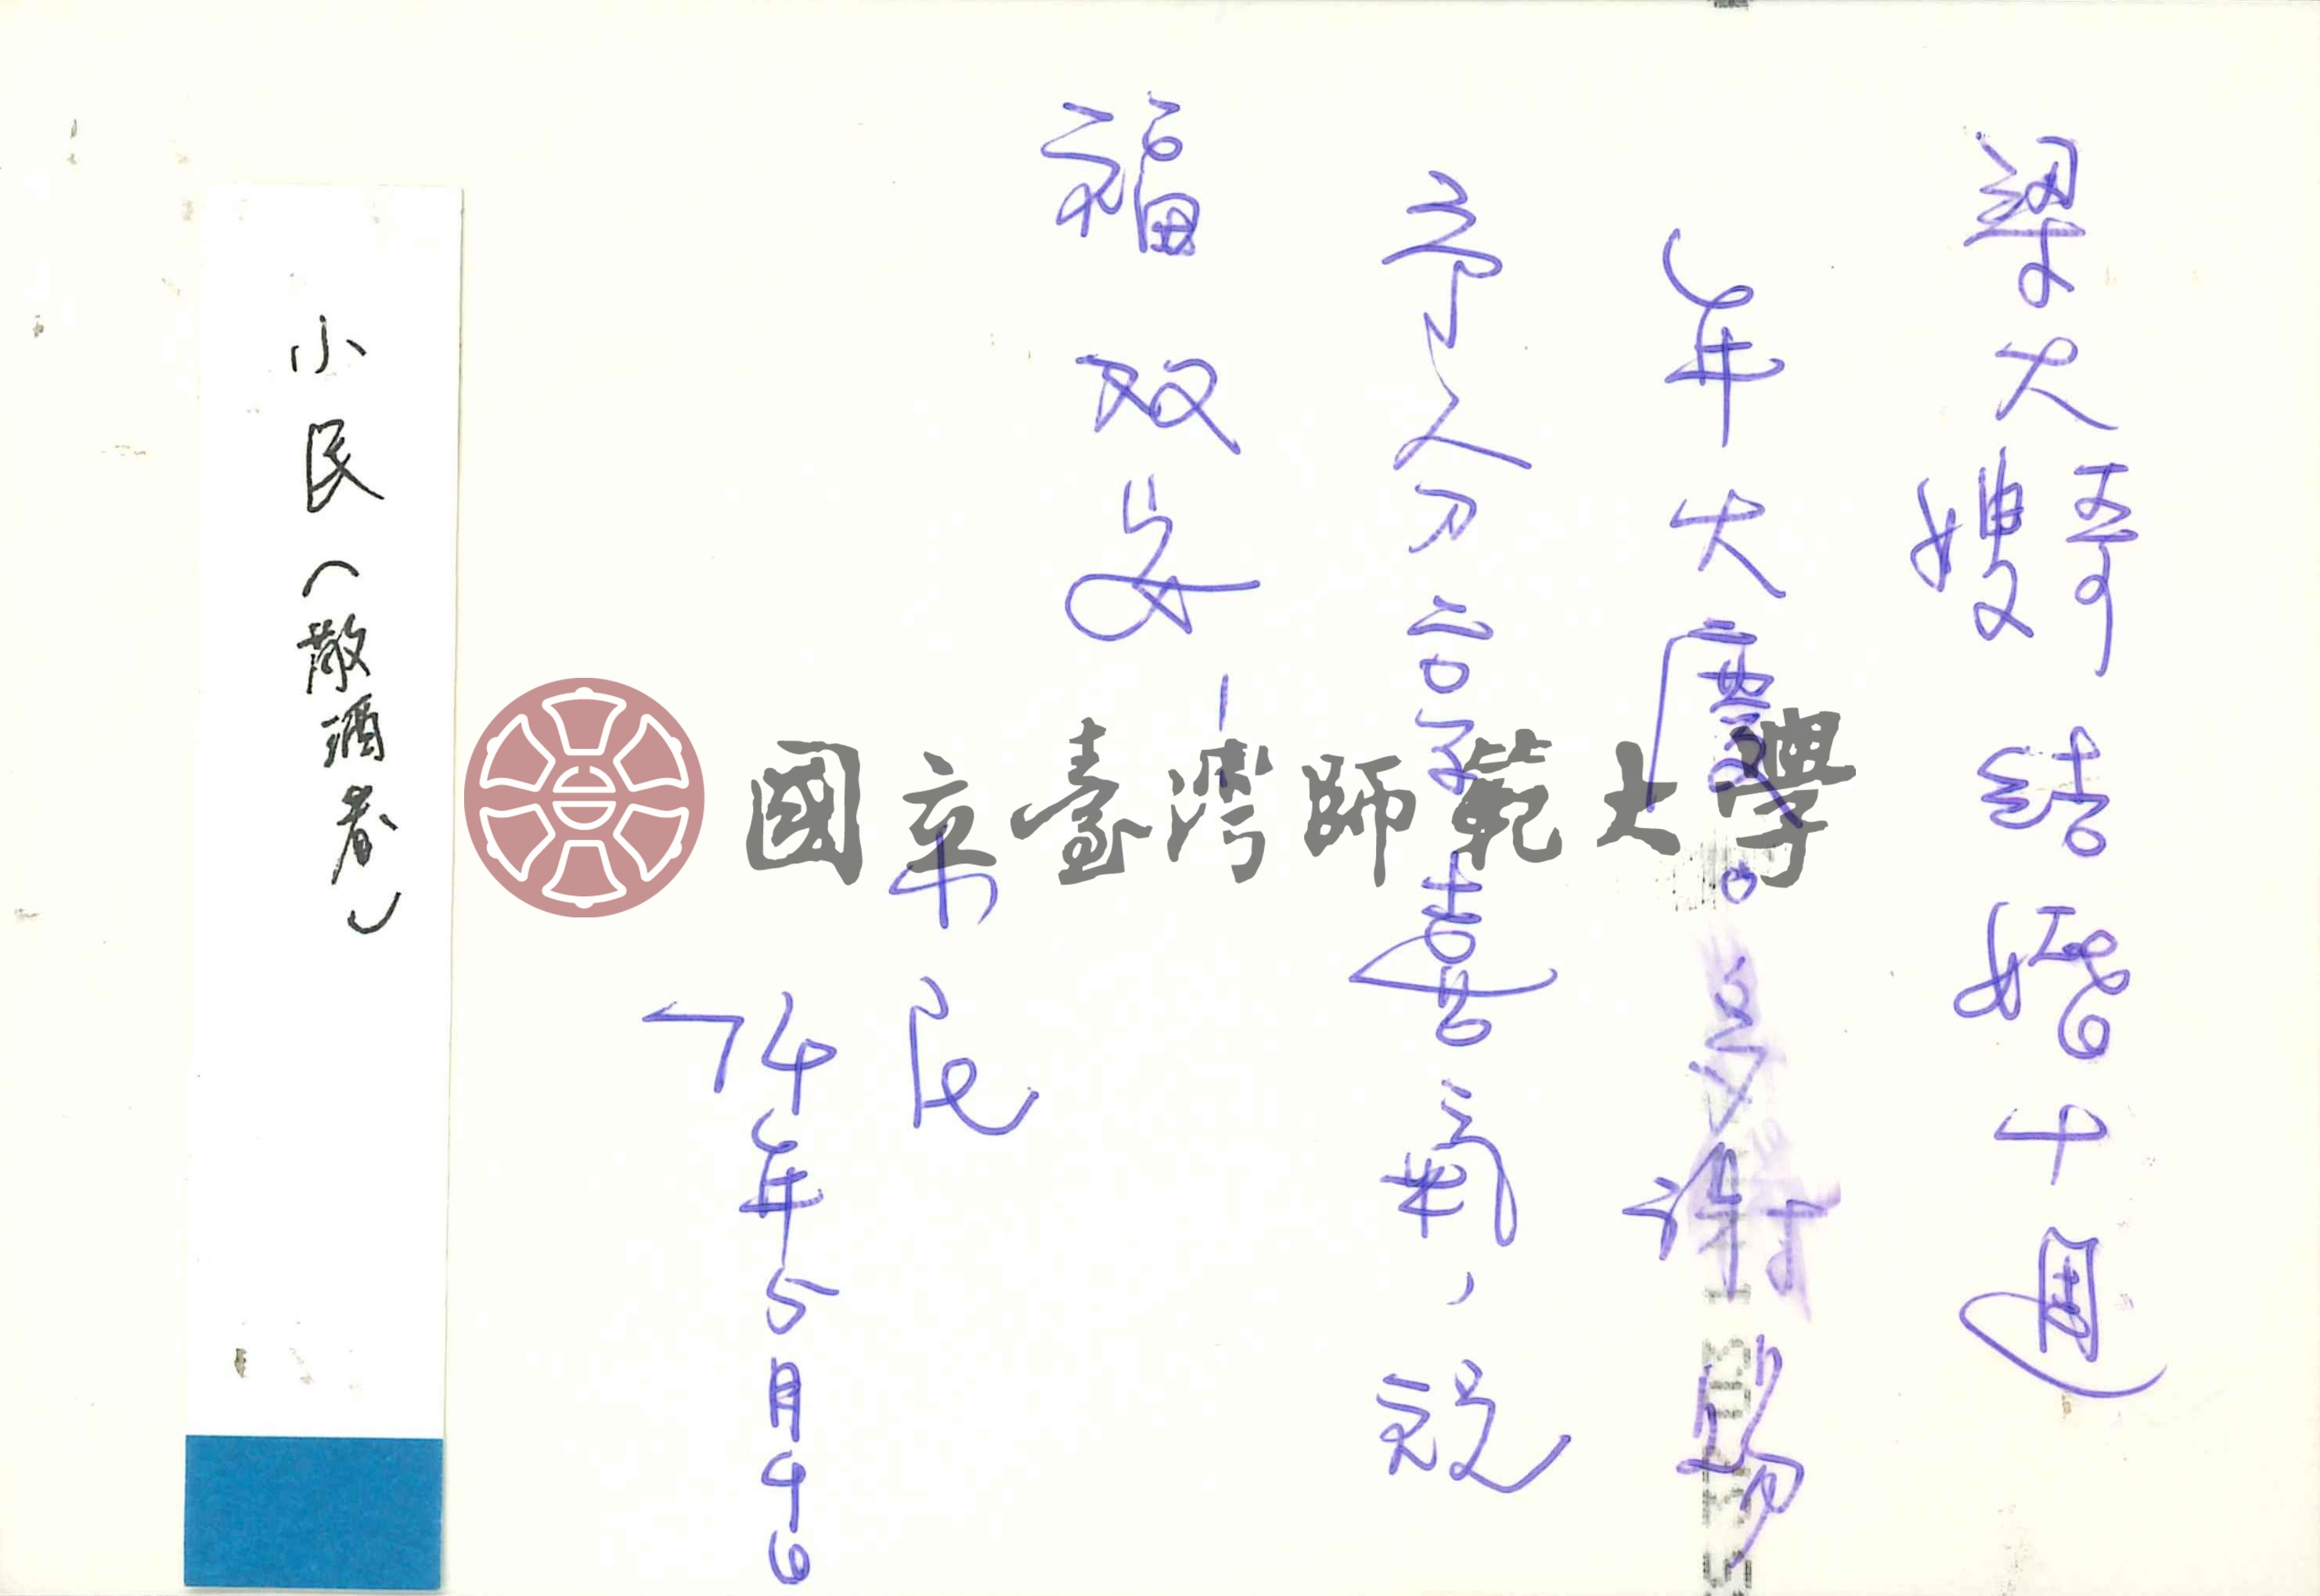 梁大哥嫂結婚十週
年大慶。多謝賜
予人分享喜氣，祝
福双安！
小民
74年5月9日
小民
國立臺灣師範大學